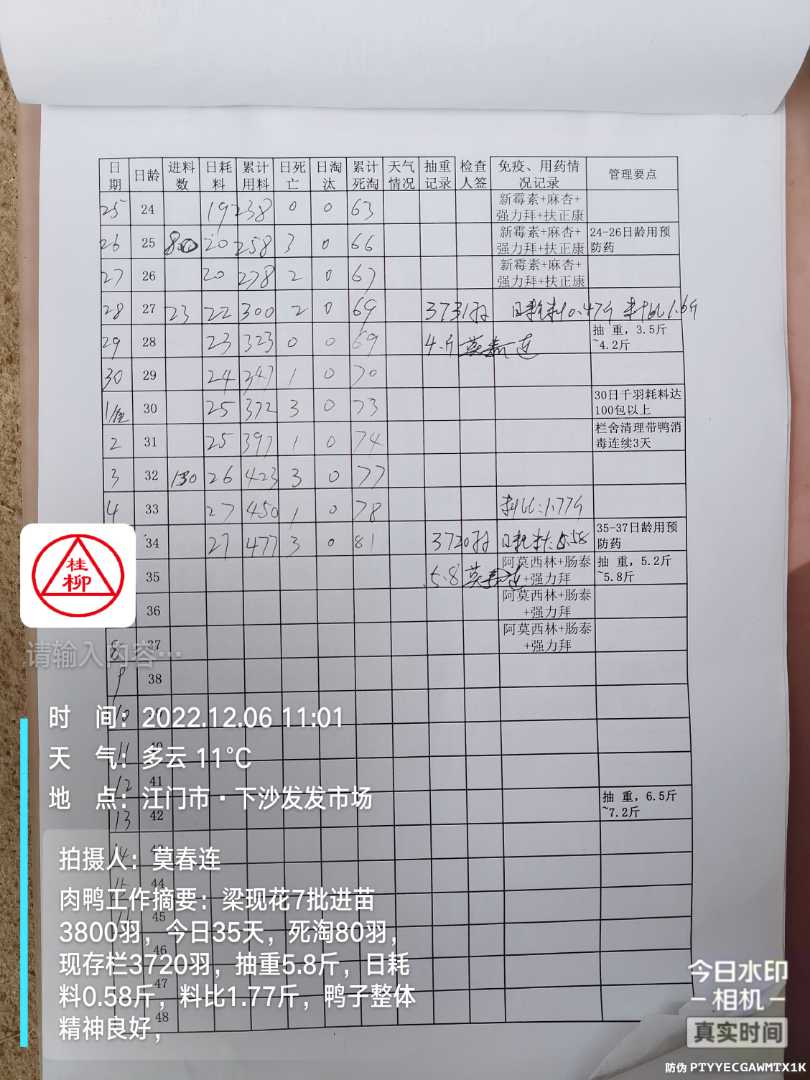 日期 日龄 进料数 日耗料 累计用料 日死亡 日淘汰 累计死淘 天气情况 抽重记录 检查人签 免疫、用药情况记录 管理要点
25 24 19 238 0 0 63 新霉素+麻杏+强力拜+扶正康
26 25 800 20 258 3 0 66 新霉素+麻杏+强力拜+扶正康 24-26日龄用预防药
27 26 20 278 2 0 67 新霉素+麻杏+强力拜+扶正康
28 27 23 22 300 2 0 69 3731羽 日耗料0.47斤 料比1.6斤
29 28 23 323 0 0 69 4.斤 莫春连 抽 重，3.5斤~4.2斤
30 29 24 347 1 0 70
30 25 372 3 0 73 30日千羽耗料达100包以上
2 31 25 397 1 0 74 栏舍清理带鸭消毒连续3天
3 32 130 26 423 3 0 77
4 33 27 450 1 0 78 料比:1.77斤
34 27 477 3 0 81 3720羽 日耗料:0.58 35-37日龄用预防药
35 5.8 莫春连 阿莫西林+肠泰+强力拜 抽 重，5.2斤~5.8斤
36 阿莫西林+肠泰+强力拜
8 37 阿莫西林+肠泰+强力拜
9 38
10
11 40
12 41
13 42 抽 重，6.5斤~7.2斤
14
15 44
45
46
47
48
桂柳
请输入内容…
时 间：2022.12.06 11:01
天 气：多云 11℃
地 点：江门市·下沙发发市场
拍摄人：莫春连
肉鸭工作摘要：梁现花7批进苗
3800羽，今日35天，死淘80羽，
现存栏3720羽，抽重5.8斤，日耗
料0.58斤，料比1.77斤，鸭子整体
精神良好，
今日水印
相机
真实时间
防伪 PTYYECGAWMTX1K